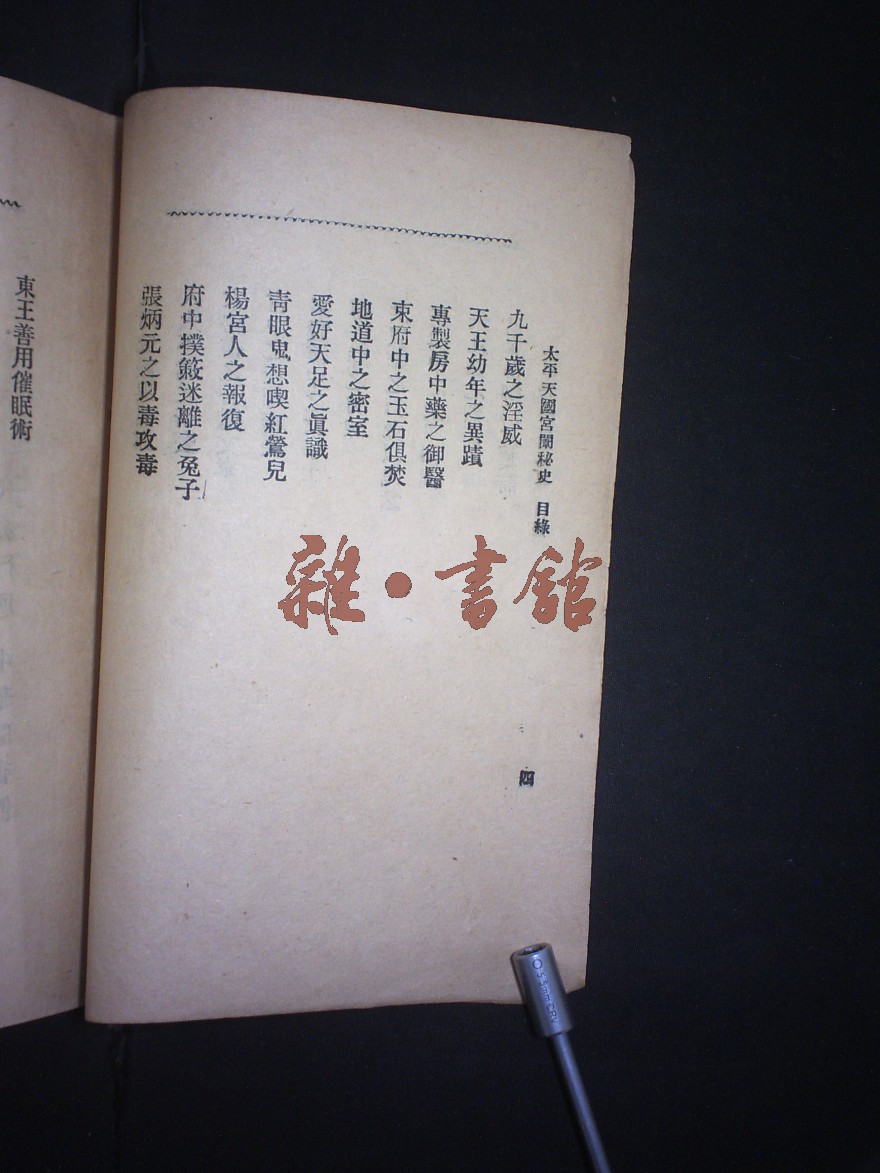 太平天國宮闈秘史 目錄
九千歲之淫威
天王幼年之異蹟
專製房中藥之御醫
東府中之玉石俱焚
地道中之密室
愛好天足之眞識
靑眼鬼想喫紅鶯兒
楊宮人之報復
府中撲簌迷離之兔子
張炳元之以毒攻毒
四
東王善用催眠術
雜·書館